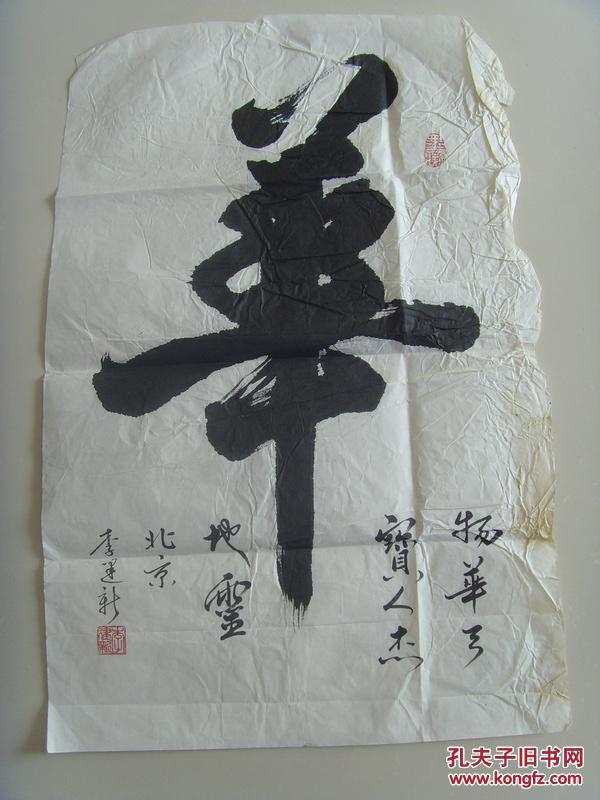 華
物華天
寶人杰
地靈
北京
李建新
孔夫子旧书网
www.kongfz.com